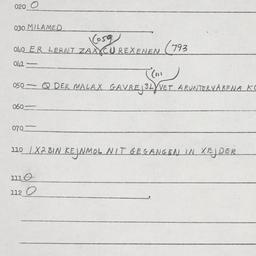 020 O
030 MILAMED
(059
040 ER LERNT ZAX CU REXENEN (793
041 —
(111
050 — Q DER MALAX GAVREJ3L VET ARUNTERVARFNA
060 —
070 —
110 IX2BIN KEJNMOL NIT GEGANGEN IN XEJDER
111 O
112 O